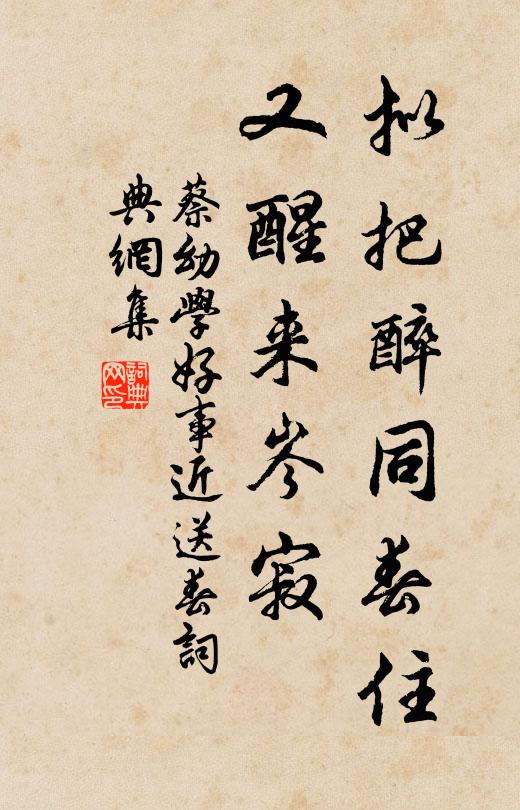 拟把醉同春住
又醒来岑寂
蔡幼學好事近送春詞
典網集
詞典网印